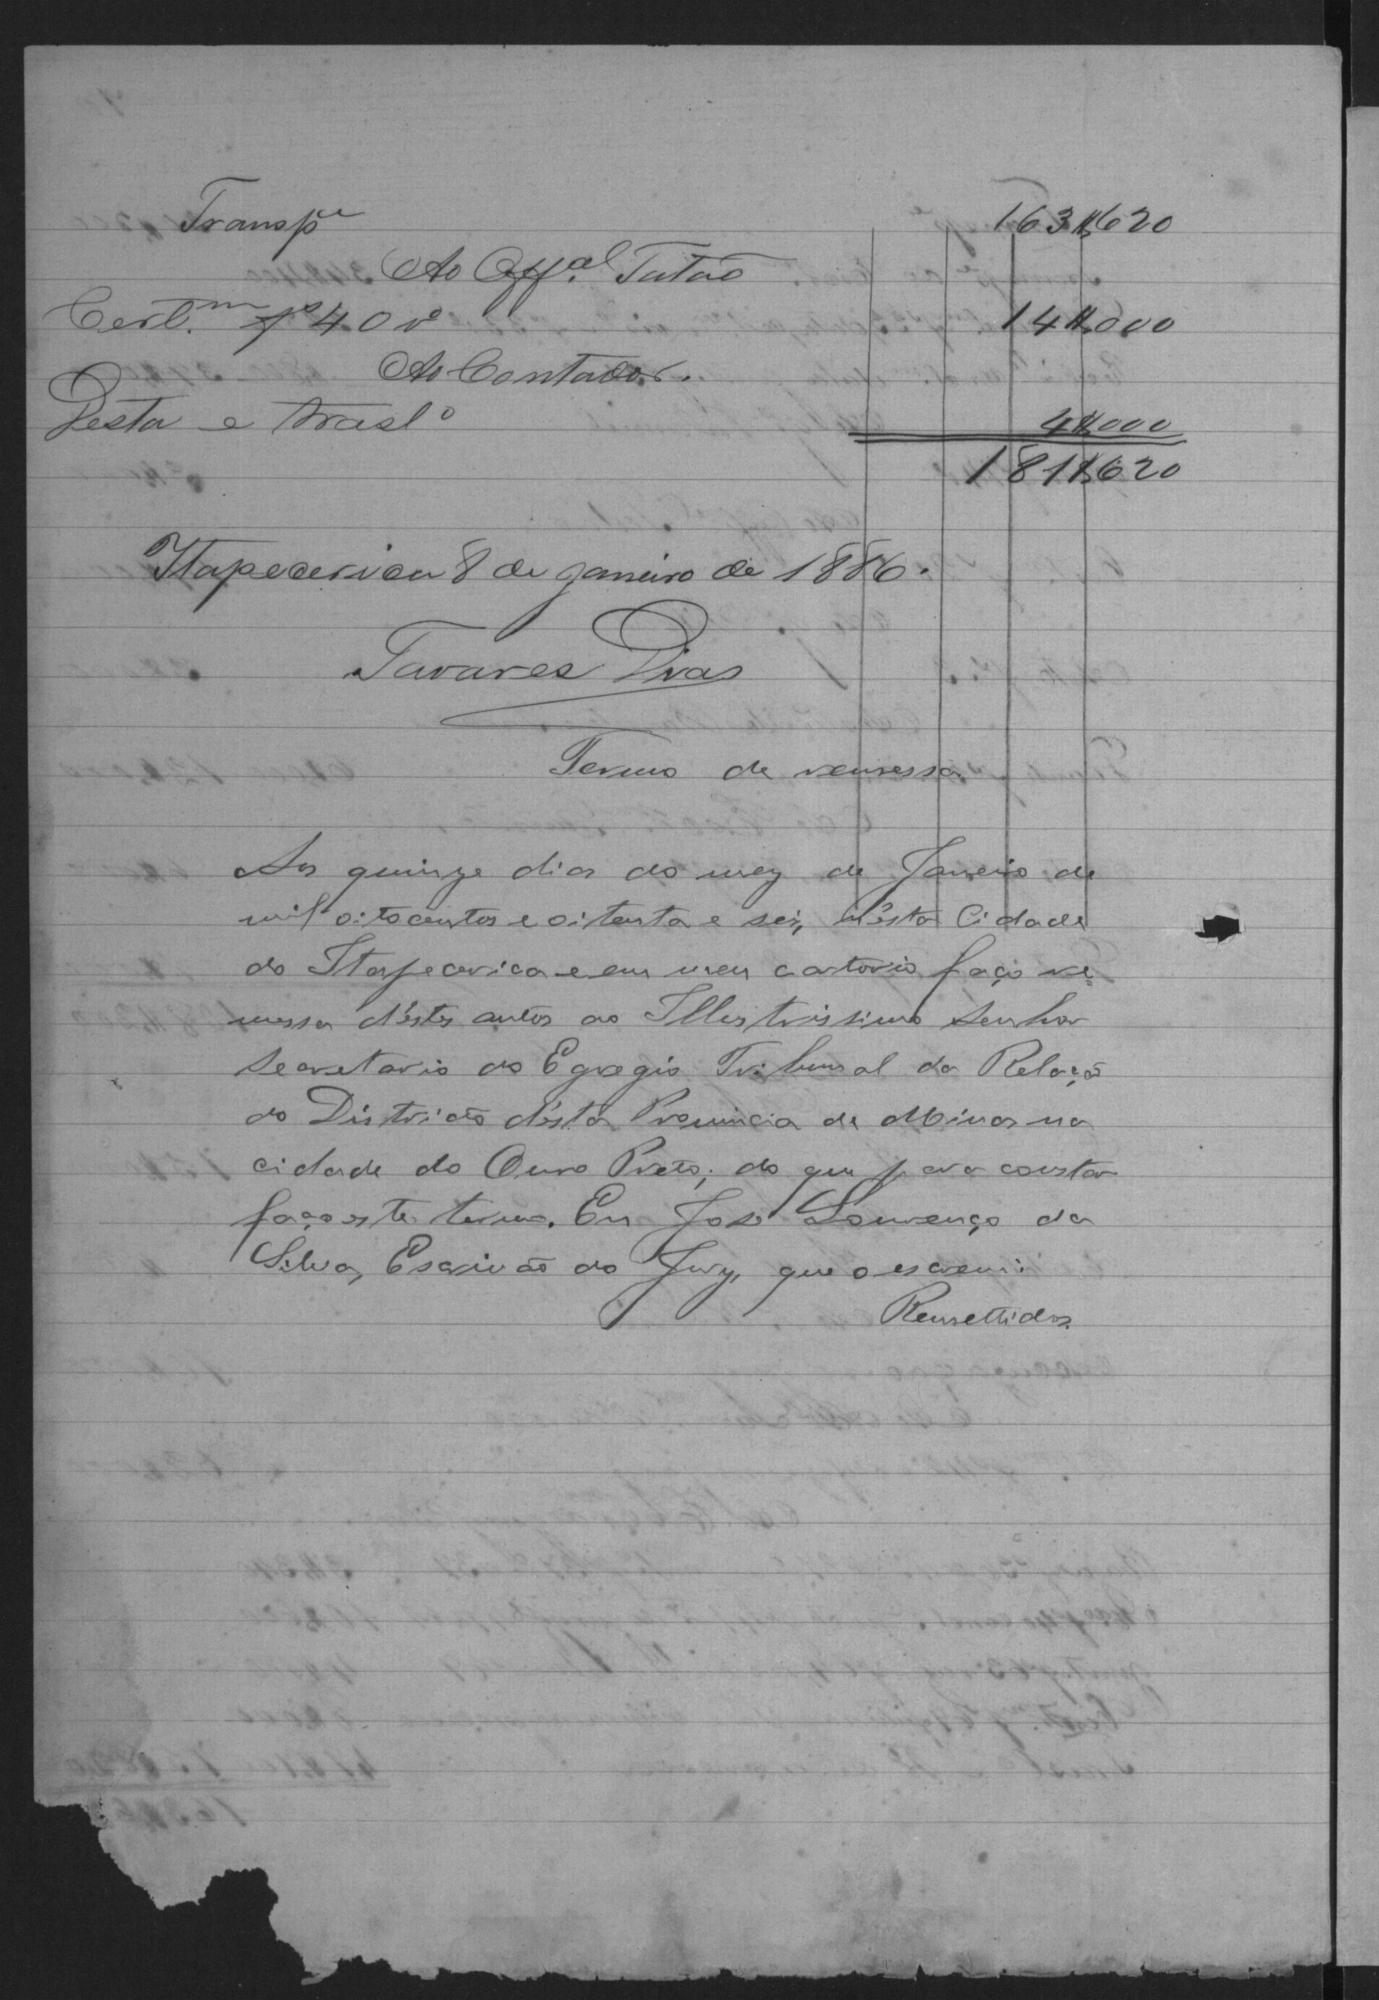 Transpe 163$620
Ao Offal. Tatão
Certm. fs 40 vo 14$000
Ao Contador.
Desta e traslo 4$000
181$620
Itapecerica 8 de janeiro de 1886.
Tavares Dias
Termo de remessa
Aos quinze dias do mez de Janeiro de
mil oitocentos e oitenta e seis, n'ésta Cidade
do Itapecerica e em meu cartorio faço re=
messa d'éstes autos ao Illustrissimo Senhor
Secretario do Egregio Tribunal da Relação
do Districto d'ésta Provincia de Minas na
cidade do Ouro Preto; do que para constar
faço este termo. Eu José Lourenço da
Silva, Escrivão do Jury, que o escrevi.
Remettidos.